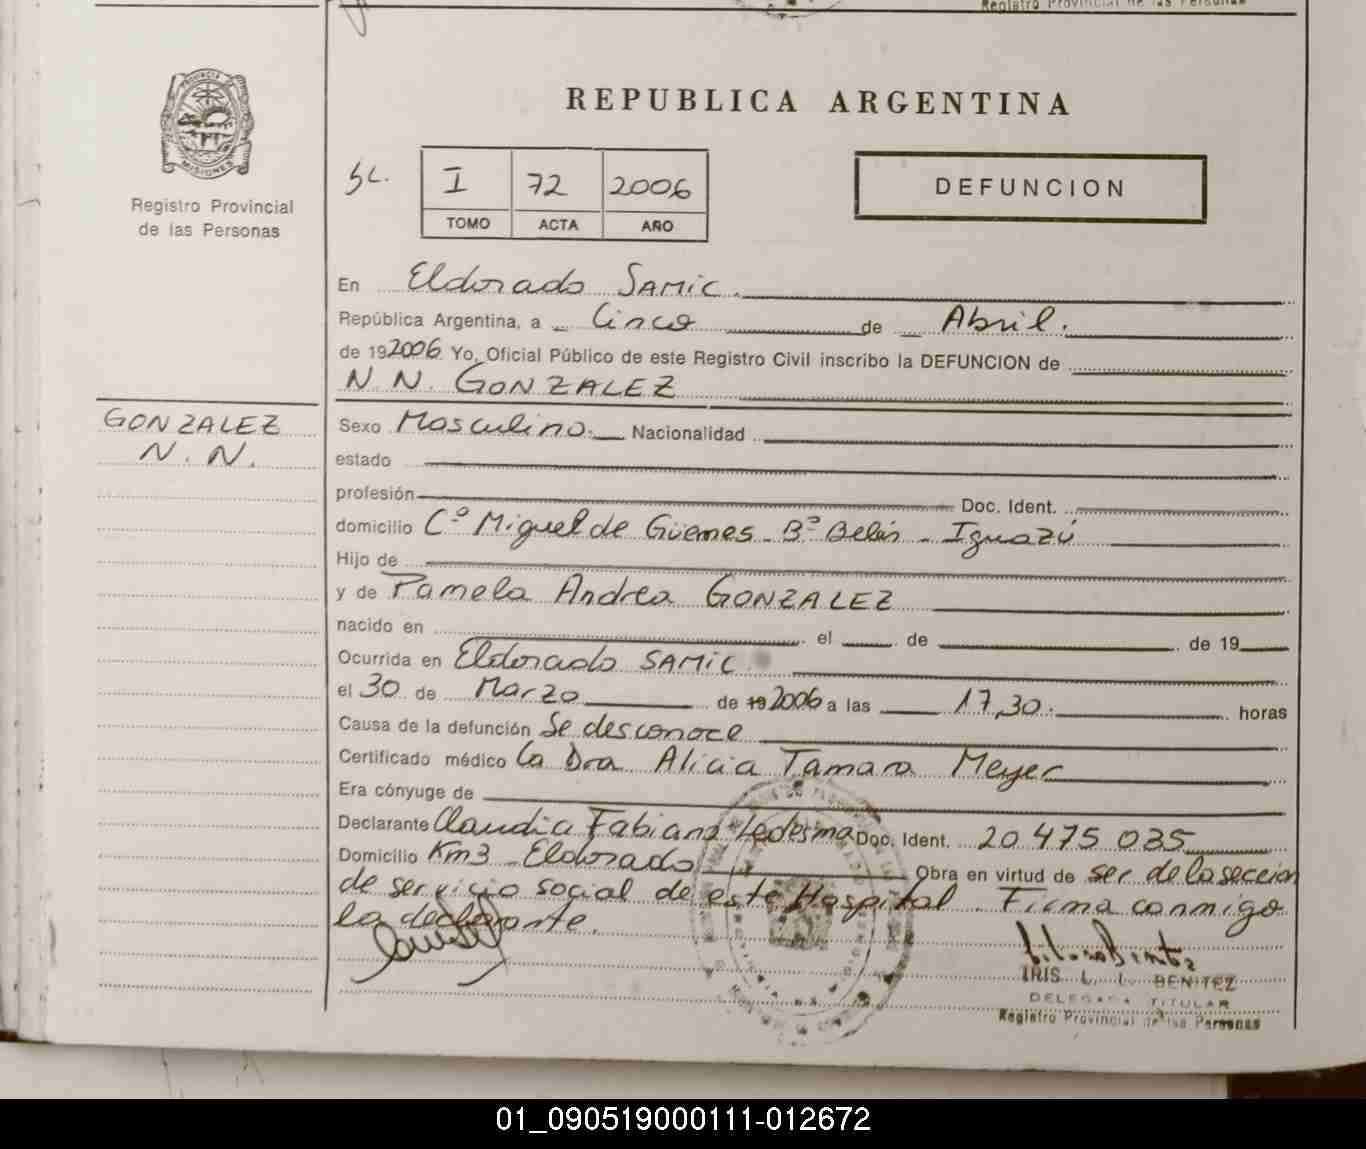 Registro Provincial de las Personas
PROVINCIA DE
MISIONES
Registro Provincial
de las Personas
REPUBLICA ARGENTINA
SC. I 72 2006
TOMO ACTA AÑO
DEFUNCION
En Eldorado SAMIC.
República Argentina, a Cinco de Abril.
de 192006 Yo, Oficial Público de este Registro Civil inscribo la DEFUNCION de
N N. GONZALEZ
GONZALEZ
N. N.
Sexo Masculino. Nacionalidad
estado
profesión Doc. Ident.
domicilio Cº Miguel de Güemes - Bº Belén - Iguazú
Hijo de
y de Pamela Andrea GONZALEZ
nacido en el de de 19
Ocurrida en Eldorado SAMIC
el 30 de Marzo de 192006 a las 17,30. horas
Causa de la defunción Se desconoce
Certificado médico La Dra Alicia Tamara Meyer
Era cónyuge de
Declarante Claudia Fabiana Ledesma Doc. Ident. 20 475 035
Domicilio Km3 - Eldorado Obra en virtud de ser de la seccion
de servicio social de este Hospital. Firma conmigo
la declarante.
IRIS L. L. BENITEZ
DELEGADA TITULAR
Registro Provincial de las Personas
01_090519000111-012672